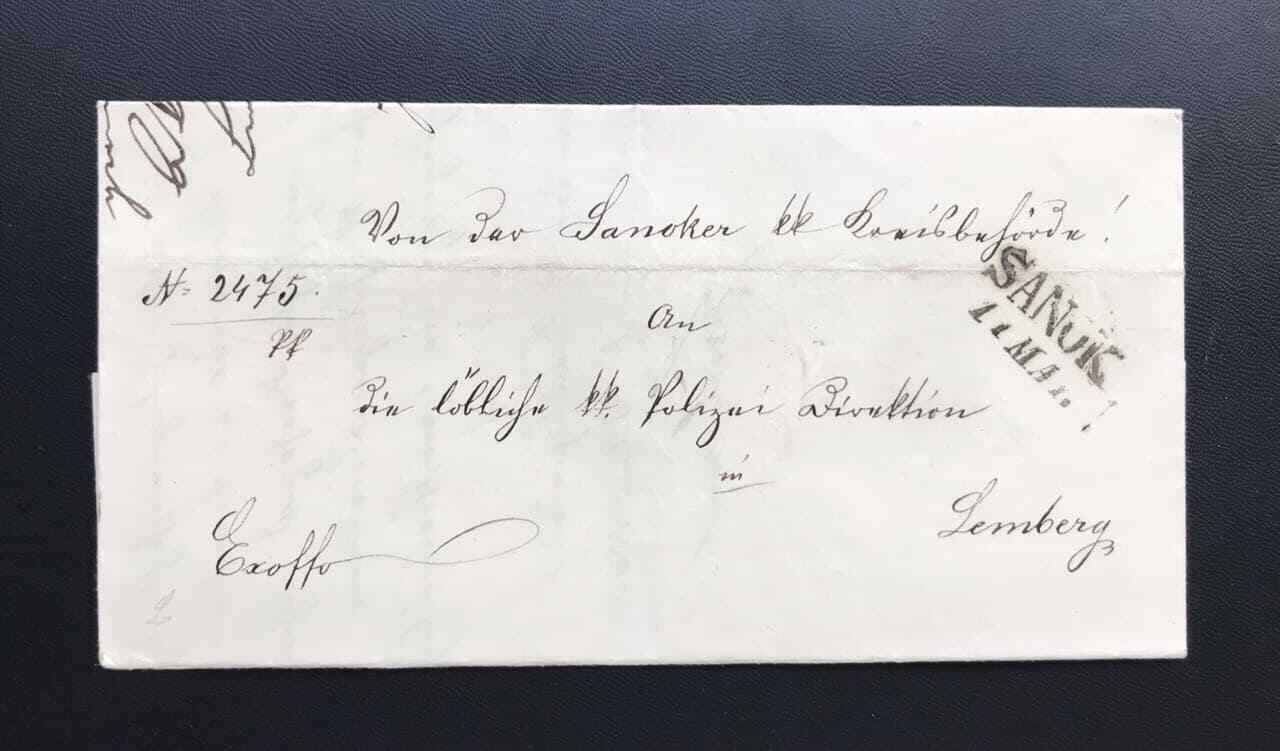 Von der Sanoker kk Kreisbehörde!
SANOK
11 MAI
N= 2475.
An
die löbliche kk. Polizei Direktion
in
Lemberg
Exoffo